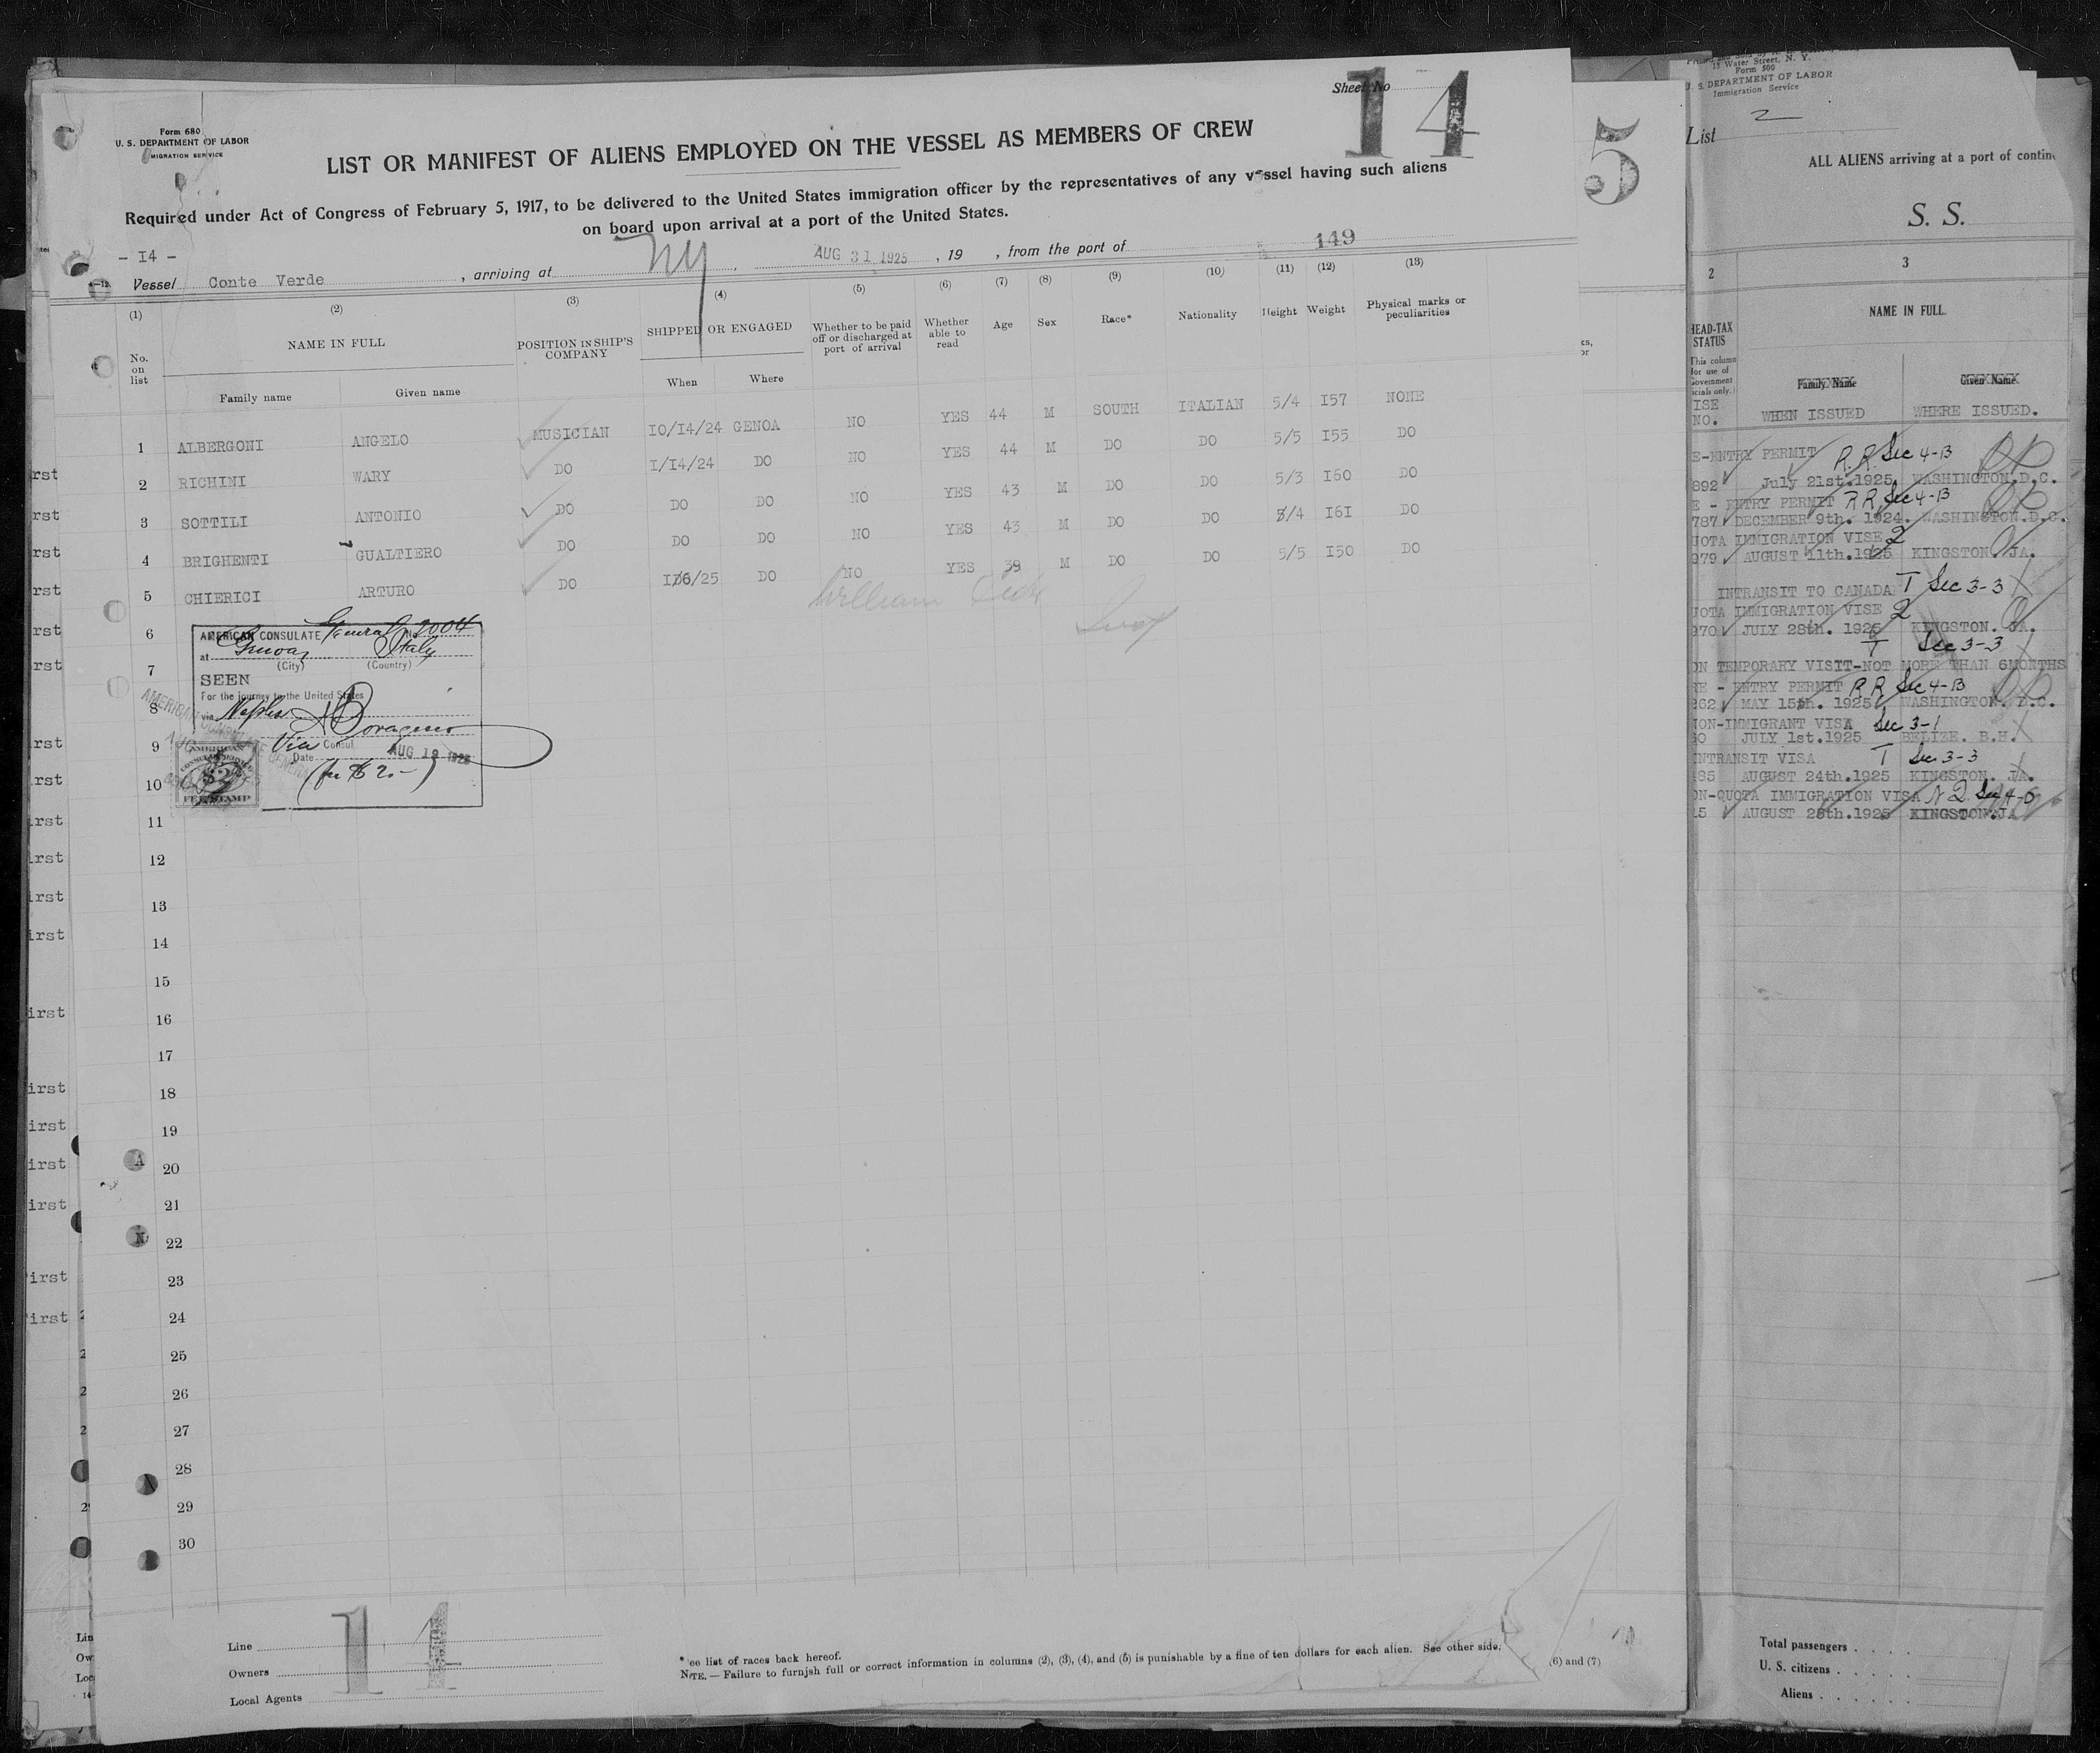 Form 680
U. S. DEPARTMENT OF LABOR
MIGRATION SERVICE
Sheet No 14
LIST OR MANIFEST OF ALIENS EMPLOYED ON THE VESSEL AS MEMBERS OF CREW
Required under Act of Congress of February 5, 1917, to be delivered to the United States immigration officer by the representatives of any vessel having such aliens
on board upon arrival at a port of the United States.
- I4 -
149
Vessel Conte Verde , arriving at NY , AUG 31 1925 , 19 , from the port of
(1) (2) (3) (4) (5) (6) (7) (8) (9) (10) (11) (12) (13)
No. on list
NAME IN FULL
Family name
Given name
POSITION IN SHIP'S COMPANY
SHIPPED OR ENGAGED
When
Where
Whether to be paid off or discharged at port of arrival
Whether able to read
Age
Sex
Race*
Nationality
Height
Weight
Physical marks or peculiarities
1 ALBERGONI ANGELO MUSICIAN IO/I4/24 GENOA NO YES 44 M SOUTH ITALIAN 5/4 I57 NONE
2 RICHINI WARY DO I/I4/24 DO NO YES 44 M DO DO 5/5 I55 DO
3 SOTTILI ANTONIO DO DO DO NO YES 43 M DO DO 5/3 I60 DO
4 BRIGHENTI GUALTIERO DO DO DO NO YES 43 M DO DO 5/4 I6I DO
5 CHIERICI ARTURO DO /25 DO NO YES 39 M DO DO 5/5 I50 DO
William
6
7
8
9
10
11
12
13
14
15
16
17
18
19
20
21
22
23
24
25
26
27
28
29
30
AMERICAN CONSULATE General No. 2004
at Genoa Italy
(City) (Country)
SEEN
For the journey to the United States
via Naples
Vice Consul
Date AUG 19 1925
(fee $ 2.-)
AMERICAN
$2
FEE STAMP
Line
Owners
Local Agents
14
* ee list of races back hereof.
NOTE.— Failure to furnish full or correct information in columns (2), (3), (4), and (5) is punishable by a fine of ten dollars for each alien. See other side.
(6) and (7)
5
15 Water Street, N. Y.
Form 500
U. S. DEPARTMENT OF LABOR
Immigration Service
List 2
ALL ALIENS arriving at a port of contin
S. S.
2 3
HEAD-TAX STATUS
NAME IN FULL.
This column for use of Government officials only.)
Family Name
Given Name
ISE NO.
WHEN ISSUED
WHERE ISSUED.
E-ENTRY PERMIT R.R. Sec 4-B
892 July 21st.1925, WASHINGTON.D.C.
E - ENTRY PERMIT R R Sec 4-B
787 DECEMBER 9th. 1924. WASHINGTON.D.C.
UOTA IMMIGRATION VISE 2
979 AUGUST 11th.1925 KINGSTON. JA.
INTRANSIT TO CANADA T Sec 3-3
UOTA IMMIGRATION VISE 2
970 JULY 28th. 1925 KINGSTON. JA.
T Sec 3-3
ON TEMPORARY VISIT-NOT MORE THAN 6MONTHS
RE - ENTRY PERMIT R R Sec 4-B
262 MAY 15th. 1925 WASHINGTON. D.C.
NON-IMMIGRANT VISA Sec 3-1
0 JULY 1st.1925 BELIZE. B.H.
INTRANSIT VISA T Sec 3-3
85 AUGUST 24th.1925 KINGSTON. JA.
ON-QUOTA IMMIGRATION VISA
5 AUGUST 28th.1925 KINGSTON.JA
Total passengers
U. S. citizens
Aliens